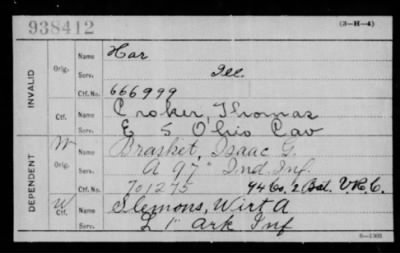 938412
(3-H-4)
INVALID
Orig.
Name
Har
Serv.
Ill.
Ctf. No.
666999
Ctf.
Name
Croker, Thomas
Serv.
E 5 Ohio Cav
DEPENDENT
W
Orig.
Name
Brasket, Isaac G.
Serv.
A 97" Ind. Inf.
Ctf. No.
701275
74 Co. 2 Bat. V.R.C.
W
Ctf.
Name
Slemons, Wirt A
Serv.
L 1" Ark Inf